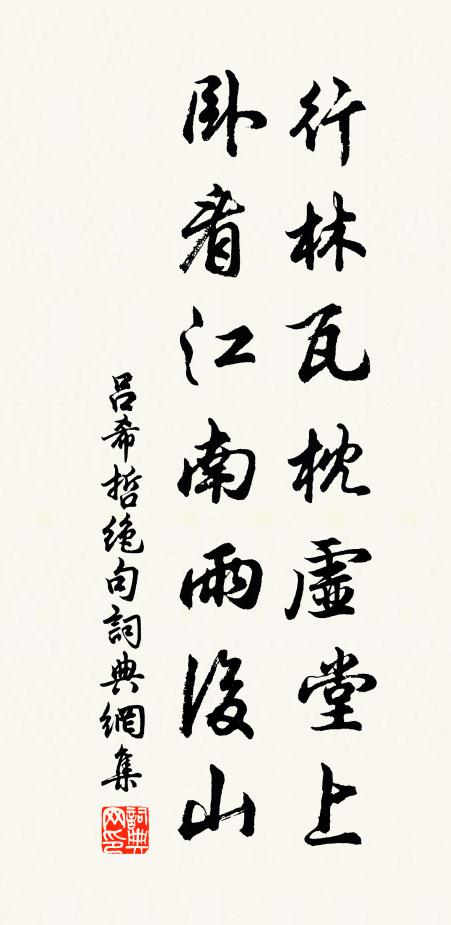 行林瓦枕虛堂上
卧看江南雨後山
吕希哲絶句詞典網集
詞典网印